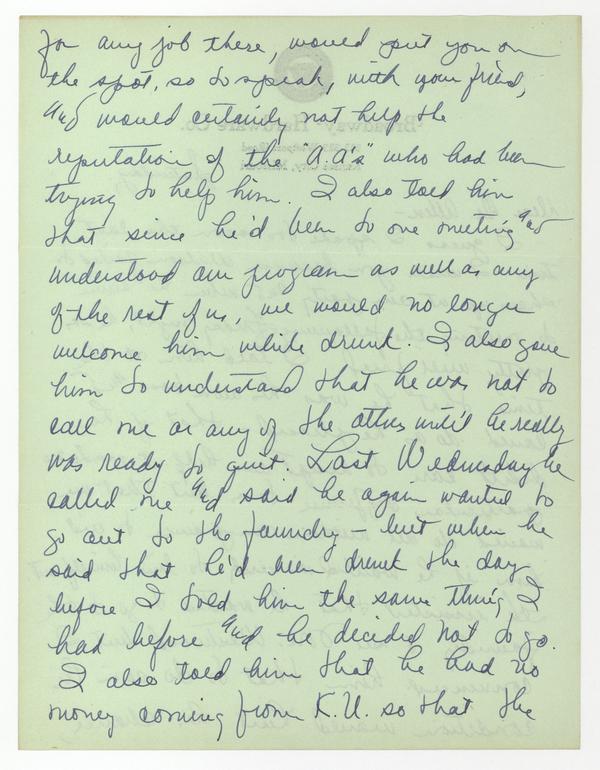 for any job there, would put you on
the spot, so to speak, with your friend,
and would certainly not help the
reputation of the "A.A's" who had been
trying to help him. I also told him
that since he'd been to one meeting and
understood our program as well as any
of the rest of us, we would no longer
welcome him while drunk. I also gave
him to understand that he was not to
call me or any of the others until he really
was ready to quit. Last Wednesday he
called me and said he again wanted to
go out to the foundry – but when he
said that he'd been drunk the day
before I told him the same thing I
had before and he decided not to go.
I also told him that he had no
money coming from K.U. so that the